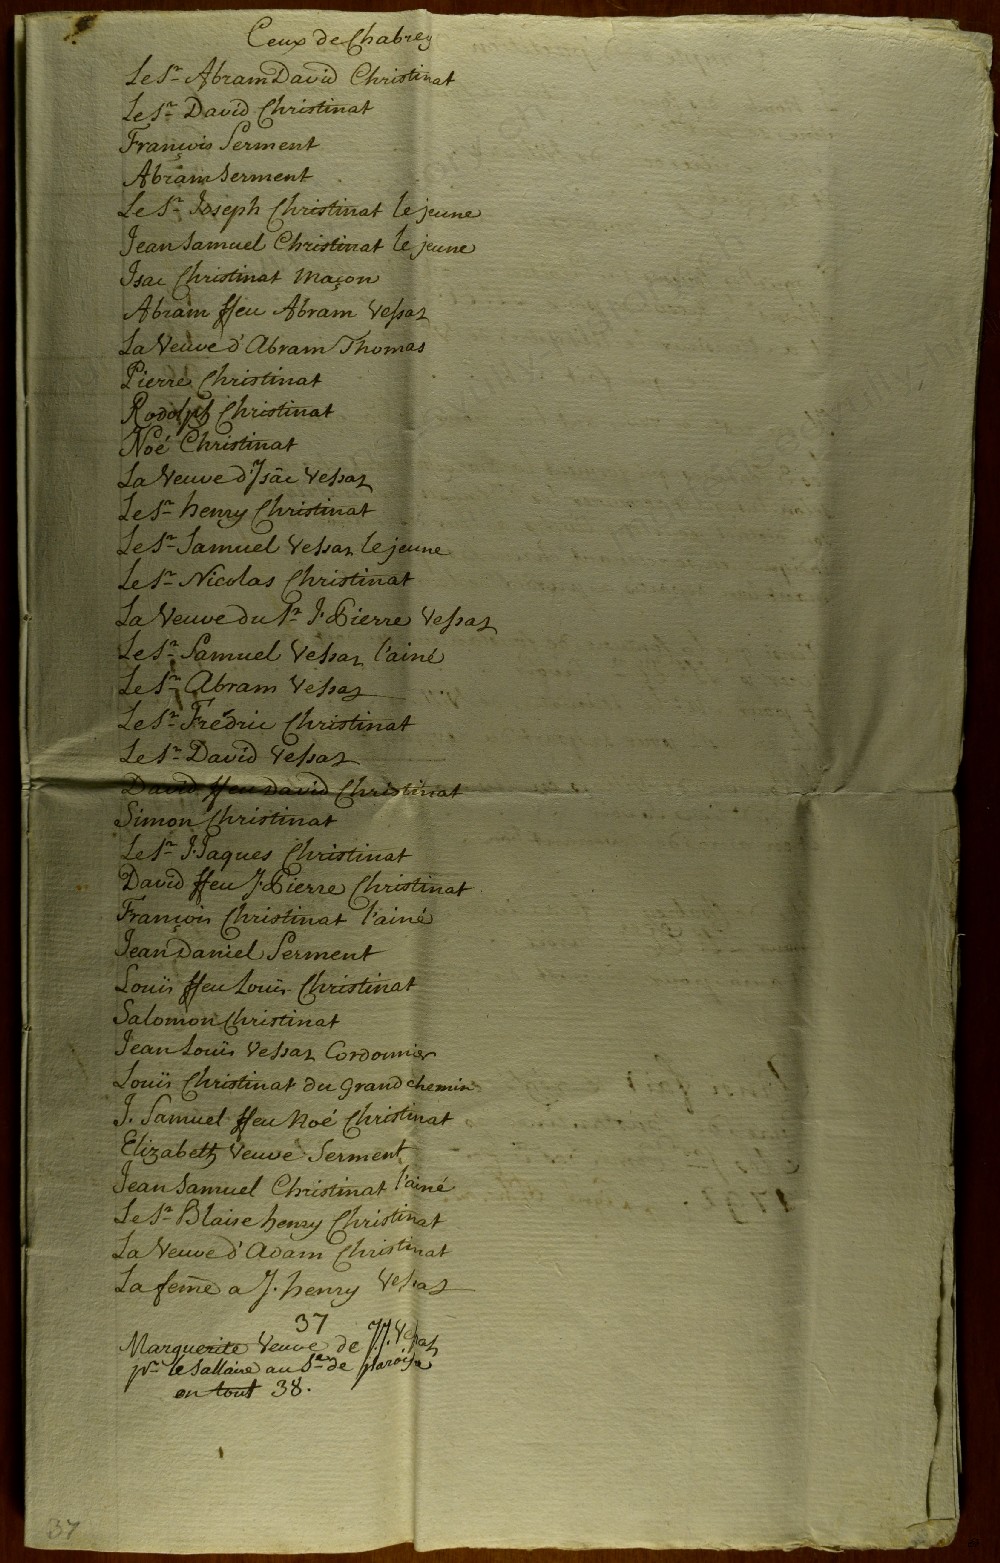 Ceux de Chabrey
Le Sr Abram David Christinat
Le Sr David Christinat
François Serment
Abram Serment
Le Sr Joseph Christinat le jeune
Jean Samuel Christinat le jeune
Isac Christinat Maçon
Abram ffeu Abram Vessaz
La Veuve d'Abram Thomas
Pierre Christinat
Rodolph Christinat
Noé Christinat
La Veuve d'Isâc Vessaz
Le Sr henry Christinat
Le Sr Samuel Vessaz le jeune
Le Sr Nicolas Christinat
La Veuve du Sr J. Pierre Vessaz
Le Sr Samuel Vessaz l'ainé
Le Sr Abram Vessaz
Le Sr Frédric Christinat
Le Sr David Vessaz
David ffeu David Christinat
Simon Christinat
Le Sr J. Jaques Christinat
David ffeu J. Pierre Christinat
François Christinat l'ainé
Jean Daniel Serment
Louïs ffeu Louïs Christinat
Salomon Christinat
Jean Louïs Vessaz Cordonnier
Louïs Christinat du grand chemin
J. Samuel ffeu Noé Christinat
Elizabeth Veuve Serment
Jean Samuel Christinat l'ainé
Le Sr Blaise henry Christinat
La Veuve d'Adam Christinat
La fem̃e a J. henry Vessaz
37
Marguerite Veuve de J. J. Vessaz
pr le Sallaire au de paroisse
en tout 38.
37